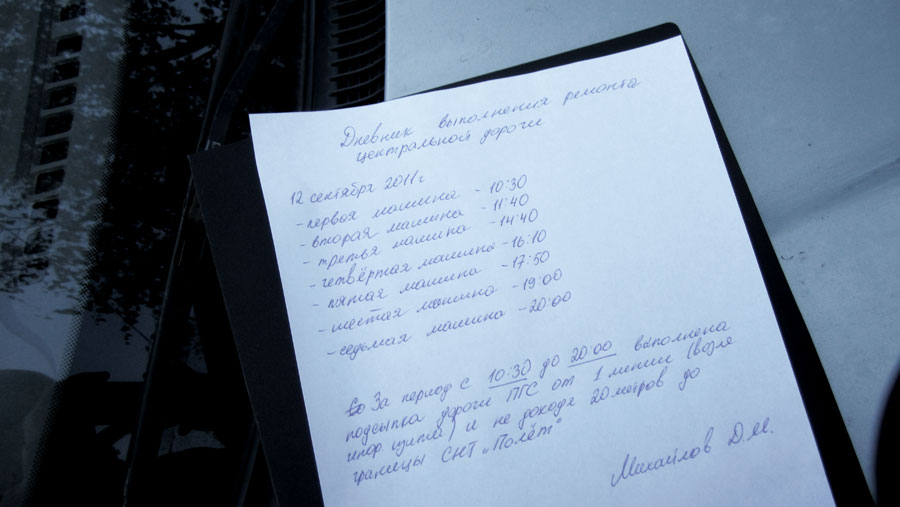 Дневник выполнения ремонта
центральной дороги
12 сентября 2011 г
- первая машина - 10:30
- вторая машина - 11:40
- третья машина - 14:40
- четвёртая машина - 16:10
- пятая машина - 17:50
- шестая машина - 19:00
- седьмая машина - 20:00
За период с 10:30 до 20:00 выполнена
подсыпка дороги ПГС от 1 линии (возле
инф щита) и не доходя 20 метров до
границы СНТ „Полёт"
Михайлов Д.М.